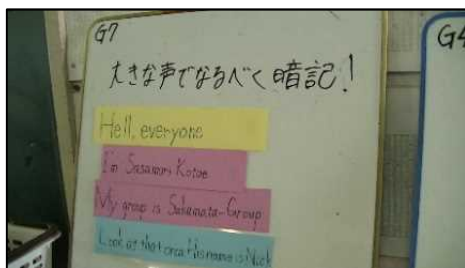 G7
G4
大きな声でなるべく暗記!
Hell, everyone
I'm Sasamori Kotoe
My group is Sakamata-Group
Look at that orca His name is Nick